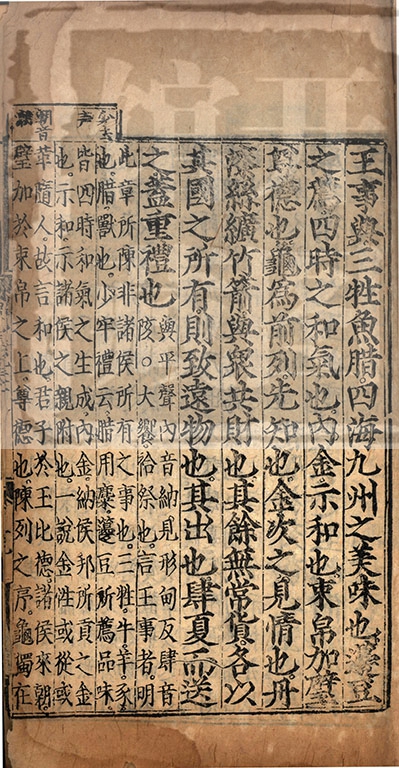 王事與三牲魚腊。四海九州之美味也。籩豆
之薦。四時之和氣也。內金示和也。束帛加璧
尊德也。龜為前列。先知也。金次之。見情也。丹
漆絲纊竹箭。與衆共財也。其餘無常貨。各以
其國之所有。則致遠物也。其出也。肆夏而送
之。蓋重禮也
與平聲內音納見形甸反肆音
陔。大饗祫祭也。言王事者。明
此章所陳非諸侯所有之事也。三牲。牛羊豕
也。腊獸也。少牢禮云。腊用麋。籩豆所薦品味
皆四時和氣之生成。內金。納侯邦所貢之金
也。示和。示諸侯之親附也。一說金性或從或
革隨人。故言和也。君子於玉比德。諸侯來朝
璧加於束帛之上。尊德也。陳列之序。龜獨在
少去
声
朝音
潮